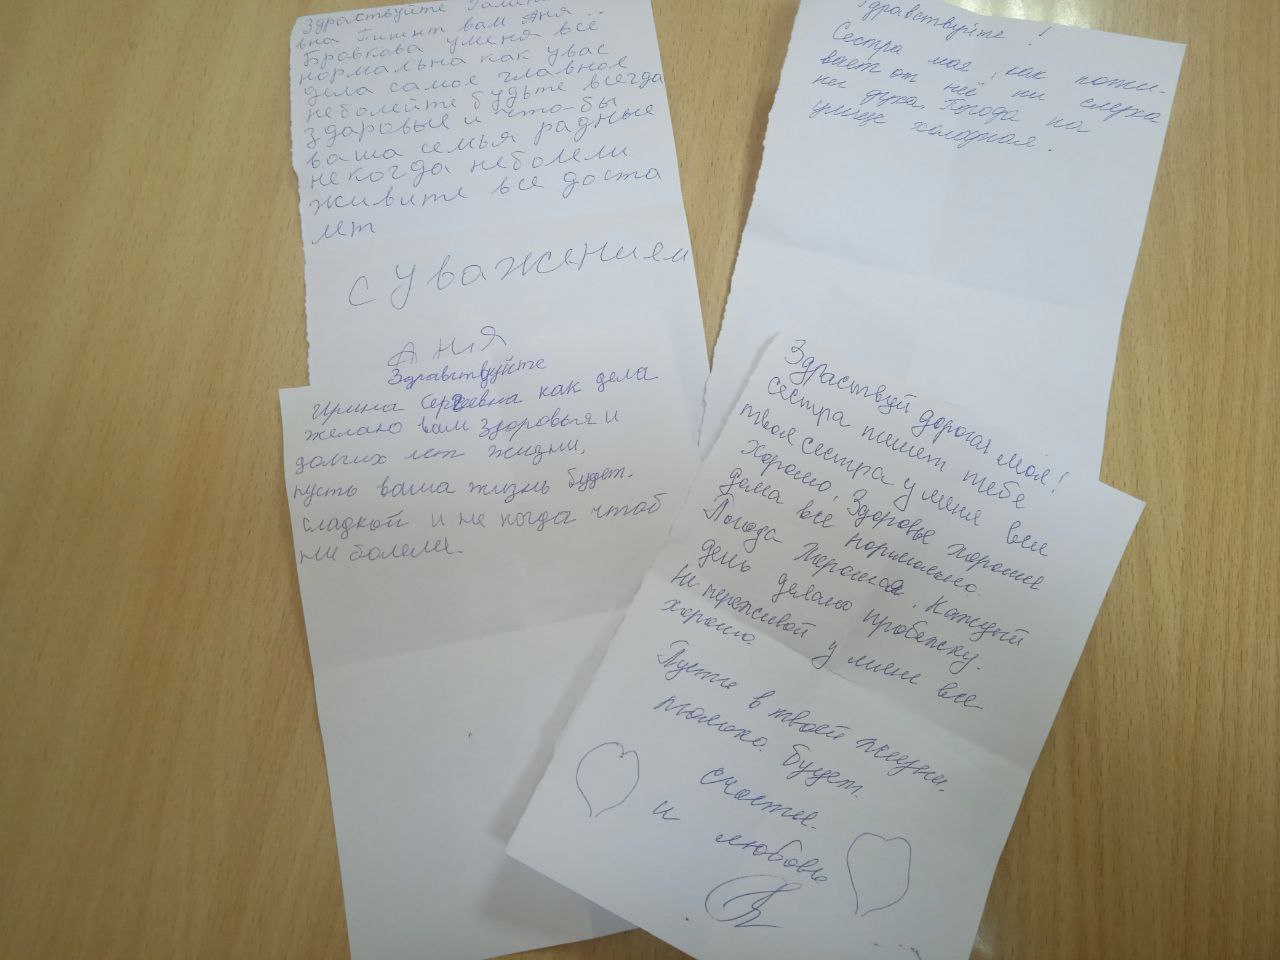 Здраствуйте Галина
вна Пишит вам Аня
Бравкова уменя всё
нормальна как увас
дела самое главное
неболейте будьте всегда
здаровые и что-бы
ваша семья радные
некогда неболели
живите все доста
лет
С уважением
Аня
Здравствуйте
Ирина Сергеевна как дела
желаю вам здоровья и
долгих лет жизни.
пусть ваша жизнь будет.
сладкой и не когда чтоб
ни болели.
Здравствуйте!
Сестра моя, как пожи-
вает от неё ни слуха
ни духа. Погода на
улице холодная.
Здраствуй дорогая моя!
сестра пишет тебе
твоя сестра у меня все
хорошо, Здоровье хорошее
дома все нормально.
Погода Хорошая. Каждый
день делаю пробежку.
Не переживай у меня все
хорошо.
Пусть в твоей жизни.
только. будет.
счастье.
и любовь